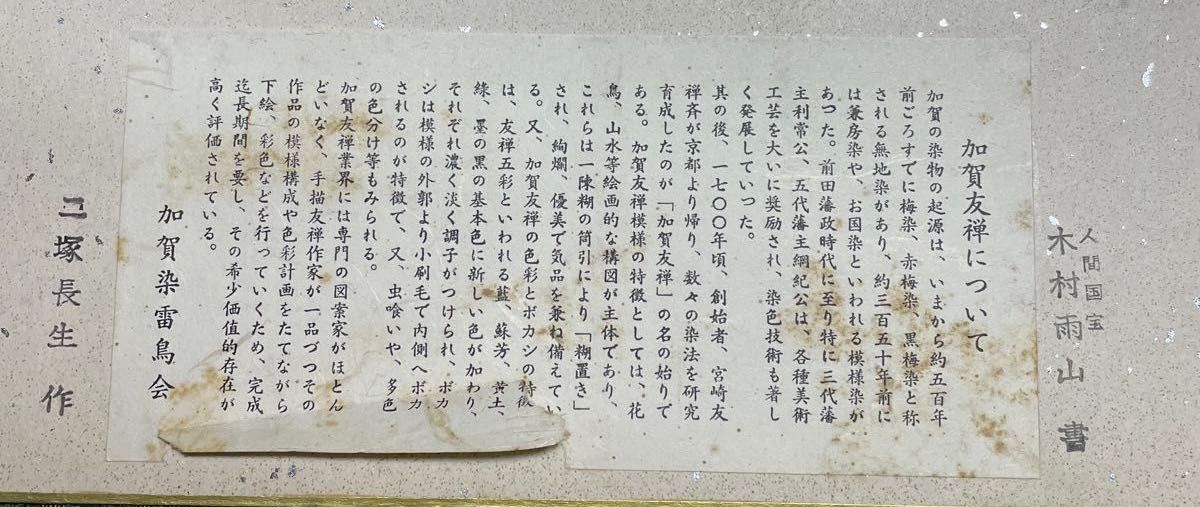 人間国宝
木村雨山 書
加賀友禅について
加賀の染物の起源は、いまから約五百年
前ごろすでに梅染、赤梅染、黒梅染と称
される無地染があり、約三百五十年前に
は兼房染や、お国染といわれる模様染が
あつた。前田藩政時代に至り特に三代藩
主利常公、五代藩主綱紀公は、各種美術
工芸を大いに奨励され、染色技術も著し
く発展していつた。
其の後、一七〇〇年頃、創始者、宮崎友
禅斉が京都より帰り、数々の染法を研究
育成したのが「加賀友禅」の名の始りで
ある。 加賀友禅模様の特徴としては、花
鳥、山水等絵画的な構図が主体であり、
これらは一陳糊の筒引により「糊置き」
され、絢爛、優美で気品を兼ね備えてい
る。又、加賀友禅の色彩とボカシの特徴
は、友禅五彩といわれる藍、蘇芳、黄土、
緑、墨の黒の基本色に新しい色が加わり、
それぞれ濃く淡く調子がつけられ、ボカ
シは模様の外郭より小刷毛で内側へボカ
されるのが特徴で、又、虫喰いや、多色
の色分け等もみられる。
加賀友禅業界には専門の図案家がほとん
どいなく、手描友禅作家が一品づつその
作品の模様構成や色彩計画をたてながら
下絵、彩色などを行っていくため、完成
迄長期間を要し、その希少価値的存在が
高く評価されている。
加賀染雷鳥会
二塚長生 作